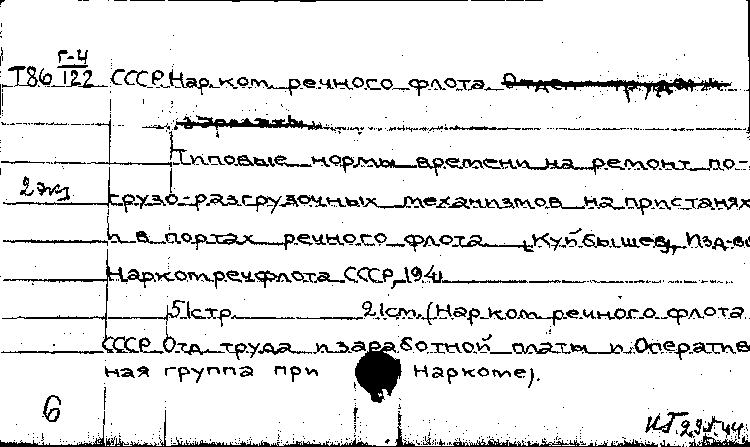 Г-4
Т86 122 СССР. Нар. ком. речного флота. Отдел труда и
зарплаты.
Типовые нормы времени на ремонт по-
2 экз
грузо-разгрузочных механизмов на пристанях
и в портах речного флота. [Куйбышев], Изд-во
Наркомречфлота СССР, 194
51 стр. 21 см. (Нар. ком. речного флота
СССР. Отд. труда и заработной платы и Оператив
ная группа при Наркоме).
6